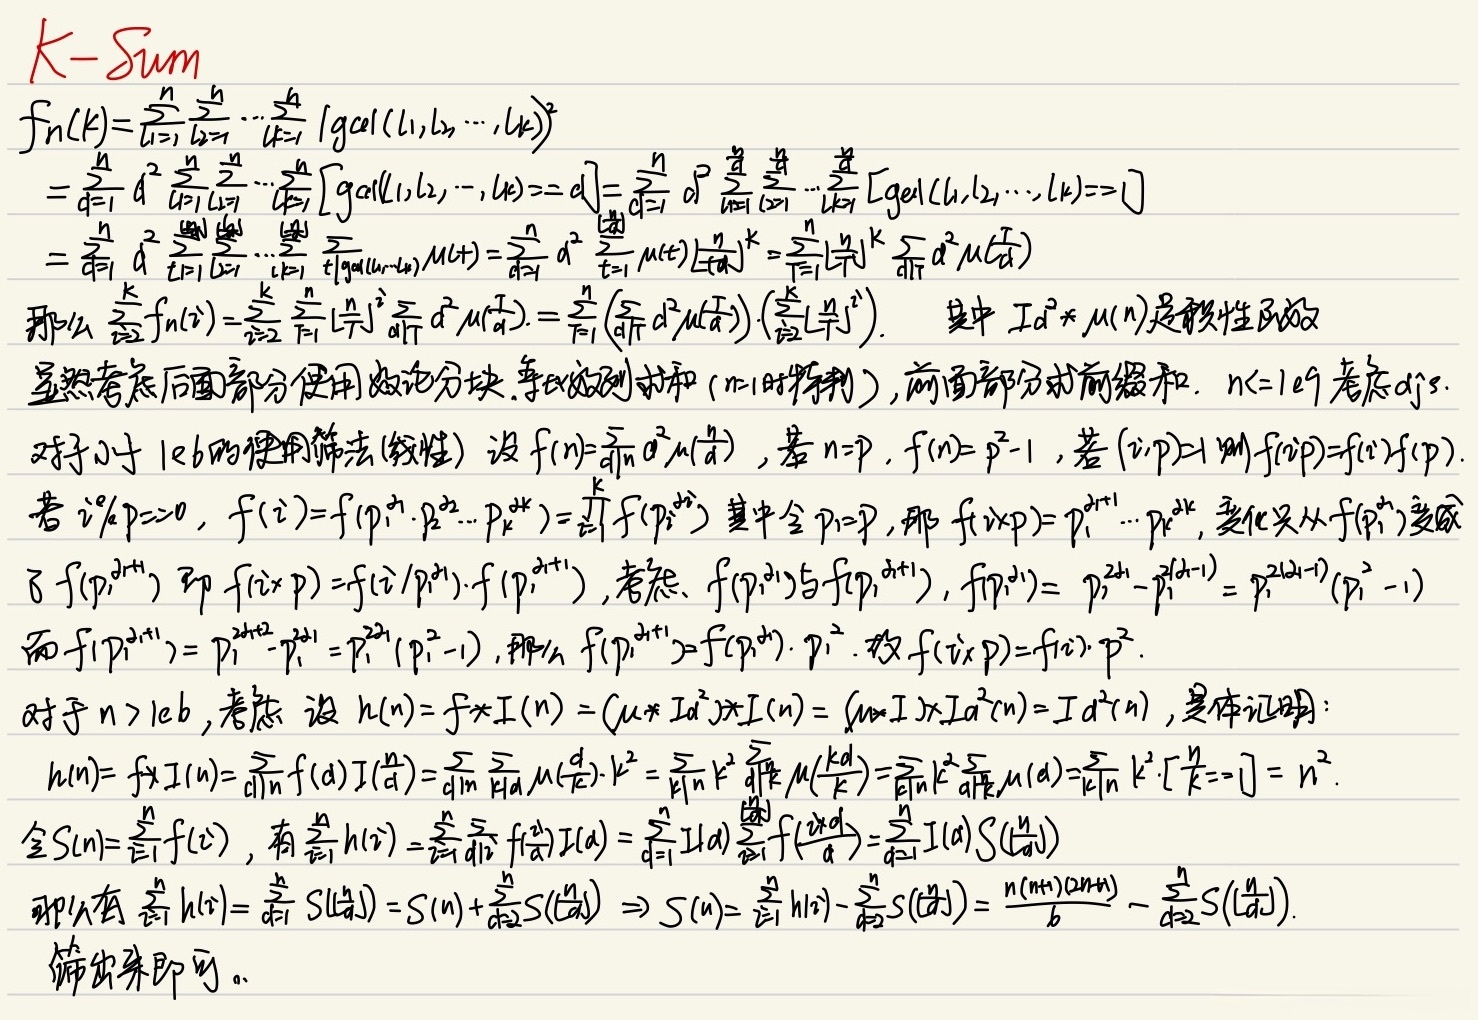 K-Sum
f_n(k)=\sum_{l_1=1}^{n}\sum_{l_2=1}^{n}\cdots\sum_{l_k=1}^{n}(gcd(l_1,l_2,\cdots,l_k))^2
=\sum_{d=1}^{n}d^2\sum_{l_1=1}^{n}\sum_{l_2=1}^{n}\cdots\sum_{l_k=1}^{n}[gcd(l_1,l_2,\cdots,l_k)==d]=\sum_{d=1}^{n}d^2\sum_{l_1=1}^{\frac{n}{d}}\sum_{l_2=1}^{\frac{n}{d}}\cdots\sum_{l_k=1}^{\frac{n}{d}}[gcd(l_1,l_2,\cdots,l_k)==1]
=\sum_{d=1}^{n}d^2\sum_{l_1=1}^{\lfloor\frac{n}{d}\rfloor}\sum_{l_2=1}^{\lfloor\frac{n}{d}\rfloor}\cdots\sum_{l_k=1}^{\lfloor\frac{n}{d}\rfloor}\sum_{t|gcd(l_1,\cdots l_k)}μ(t)=\sum_{d=1}^{n}d^2\sum_{t=1}^{\lfloor\frac{n}{d}\rfloor}μ(t)\lfloor\frac{n}{td}\rfloor^k=\sum_{T=1}^{n}\lfloor\frac{n}{T}\rfloor^k\sum_{d|T}d^2μ(\frac{T}{d})
那么\sum_{i=2}^{k}f_n(i)=\sum_{i=2}^{k}\sum_{T=1}^{n}\lfloor\frac{n}{T}\rfloor^i\sum_{d|T}d^2μ(\frac{T}{d}).=\sum_{T=1}^{n}(\sum_{d|T}d^2μ(\frac{T}{d}))\cdot(\sum_{i=2}^{k}\lfloor\frac{n}{T}\rfloor^i). 其中 Id^2*μ(n)是积性函数
显然考虑后面部分使用数论分块.等比数列求和(n=1时特判),前面部分求前缀和. n<=1e9考虑djs.
对于小于1e6的使用筛法(线性) 设f(n)=\sum_{d|n}d^2μ(\frac{n}{d}),若n=p,f(n)=p^2-1,若(i,p)=1则f(ip)=f(i)f(p).
若i%p==0,f(i)=f(p_1^{α_1}\cdot p_2^{α_2}\cdots p_k^{α_k})=\prod_{i=1}^{k}f(p_i^{α_i})其中令p_1=p,那f(i×p)=p_1^{α_1+1}\cdots p_k^{α_k},变化只从f(p_1^{α_1})变成
了f(p_1^{α_1+1})即f(i×p)=f(i/p_1^{α_1})\cdot f(p_1^{α_1+1}),考虑、f(p_1^{α_1})与f(p_1^{α_1+1}),f(p_1^{α_1})=p_1^{2α_1}-p_1^{2(α_1-1)}=p_1^{2(α_1-1)}(p_1^2-1)
而f(p_1^{α_1+1})=p_1^{2α_1+2}-p_1^{2α_1}=p_1^{2α_1}(p_1^2-1),那么f(p_1^{α_1+1})=f(p_1^{α_1})\cdot p_1^2.故f(i×p)=f(i)\cdot p^2.
对于n>1e6,考虑设h(n)=f*I(n)=(μ*Id^2)*I(n)=(μ*I)*Id^2(n)=Id^2(n),具体证明:
h(n)=f*I(n)=\sum_{d|n}f(d)I(\frac{n}{d})=\sum_{d|n}\sum_{k|d}μ(\frac{d}{k})\cdot k^2=\sum_{k|n}k^2\sum_{d|\frac{n}{k}}μ(\frac{kd}{k})=\sum_{k|n}k^2\sum_{d|\frac{n}{k}}μ(d)=\sum_{k|n}k^2\cdot[\frac{n}{k}==1]=n^2.
令S(n)=\sum_{i=1}^{n}f(i),有\sum_{i=1}^{n}h(i)=\sum_{i=1}^{n}\sum_{d|i}f(\frac{i}{d})I(d)=\sum_{d=1}^{n}I(d)\sum_{i=1}^{\lfloor\frac{n}{d}\rfloor}f(\frac{i×d}{d})=\sum_{d=1}^{n}I(d)S(\lfloor\frac{n}{d}\rfloor)
那么有\sum_{i=1}^{n}h(i)=\sum_{d=1}^{n}S(\lfloor\frac{n}{d}\rfloor)=S(n)+\sum_{d=2}^{n}S(\lfloor\frac{n}{d}\rfloor)⇒S(n)=\sum_{i=1}^{n}h(i)-\sum_{d=2}^{n}S(\lfloor\frac{n}{d}\rfloor)=\frac{n(n+1)(2n+1)}{6}-\sum_{d=2}^{n}S(\lfloor\frac{n}{d}\rfloor).
筛出来即可。.